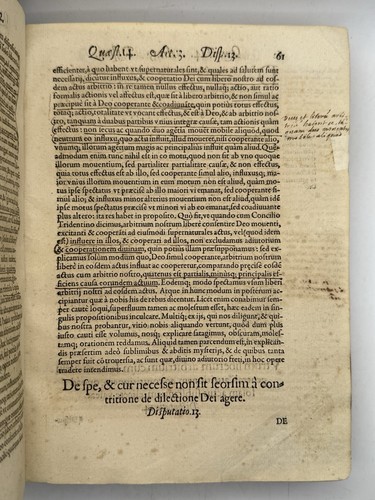 Quæst. 14. Art. 3. Disp. 13. 61
efficienter, à quo habent vt supernaturales sint, & quales ad salutem sunt
necessarij, dicitur influxus, & cooperatio Dei cum libero nostro ad eos-
dem actus arbitrio: in re tamen nullus effectus, nullusq; actio, aut ratio
formalis actionis vel affectus est, quæ sit à libero arbitrio, & non simul ac
præcipuè sit à Deo cooperante & coadiuuante, quin potius totus effectus,
totaq; actio, totalitate vt vocant effectus, & est à Deo, & ab arbitrio no-
stro, tanquam à duabus partibus vnius integræ causæ, tam actionis quàm
effectus: non secus ac quando duo agentia mouẽt mobile aliquod, quod
neutrum eo influxo, quo actu influit, illud moueret, nisi cooperante alio,
vnumq; illorum agentium magis ac principalius influit quàm aliud. Quẽ-
admodum enim tunc nihil est in eo motu, quod non sit ab vno quoque
illorum mouentium, sed partialiter partialitate causæ, & non effectus, quia
totus effectus est ab illo, sed simul alio cooperante, simul influxuq; ma-
ior vnius illorum mouentium in eum motum non est aliud, quàm mo-
tus ipse spectatus vt præcisè ab illo maiori vi emanat, sed cooperante si-
mul alio; & minor alterius mouentium non est aliud, quàm idem
motus ipse spectatus præcisè vt minori ab eo vi emanat, sed coadiuuante
plus altero: ita res habet in proposito. Quò fit, vt quando cum Concilio
Tridentino dicimus, arbitrium nostrum liberè consentire Deo mouenti,
excitanti & cooperãti ad eiusmodi supernaturales actus, vel (quod idem
est) influere in illos, & cooperari ad illos, non excludamus adiutorium
& cooperationem diuinam, quin potius illam præsupponamus: sed ex-
plicamus solùm modum quo, Deo simul cooperante, arbitrium nostrum
liberè in eosdem actus influat ac cooperetur, comparando præcisè eosdẽ
actus cum arbitrio nostro, quatenus est partialis, minusq; principalis ef-
ficiens causa eorumdem actuum. Eodemq; modo spectamus vsum liberi
arbitrij ad eosdem actus. Atque in hunc modum in posterum ac-
cipiantur quæ à nobis his de rebus dicentur. Licet enim conabimur sem-
per cautè loqui, superuacuum tamen ac molestum esset, hæc eadem in sin-
gulis propositionibus inculcare. Multiq; ex ijs, qui non diligunt, & qui-
bus nostra probantur, vitio nobis aliquando vertunt, quòd dum plus
iusto cauti esse volumus, nosq; explicare satagimus, obscuram, moles-
tamq; orationem reddamus. Aliquid tamen parcendum est, in explican-
dis præsertim adeò sublimibus & abditis mysterijs, & de quibus tanta
semper fuit cõtrouersia, ac sunt quæ, diuino adiutorio freti, in hoc opere
tradere intendimus.
De spe, & cur necesse non sit seorsim à con-
tritione de dilectione Dei agere.
Disputatio. 13.
DE